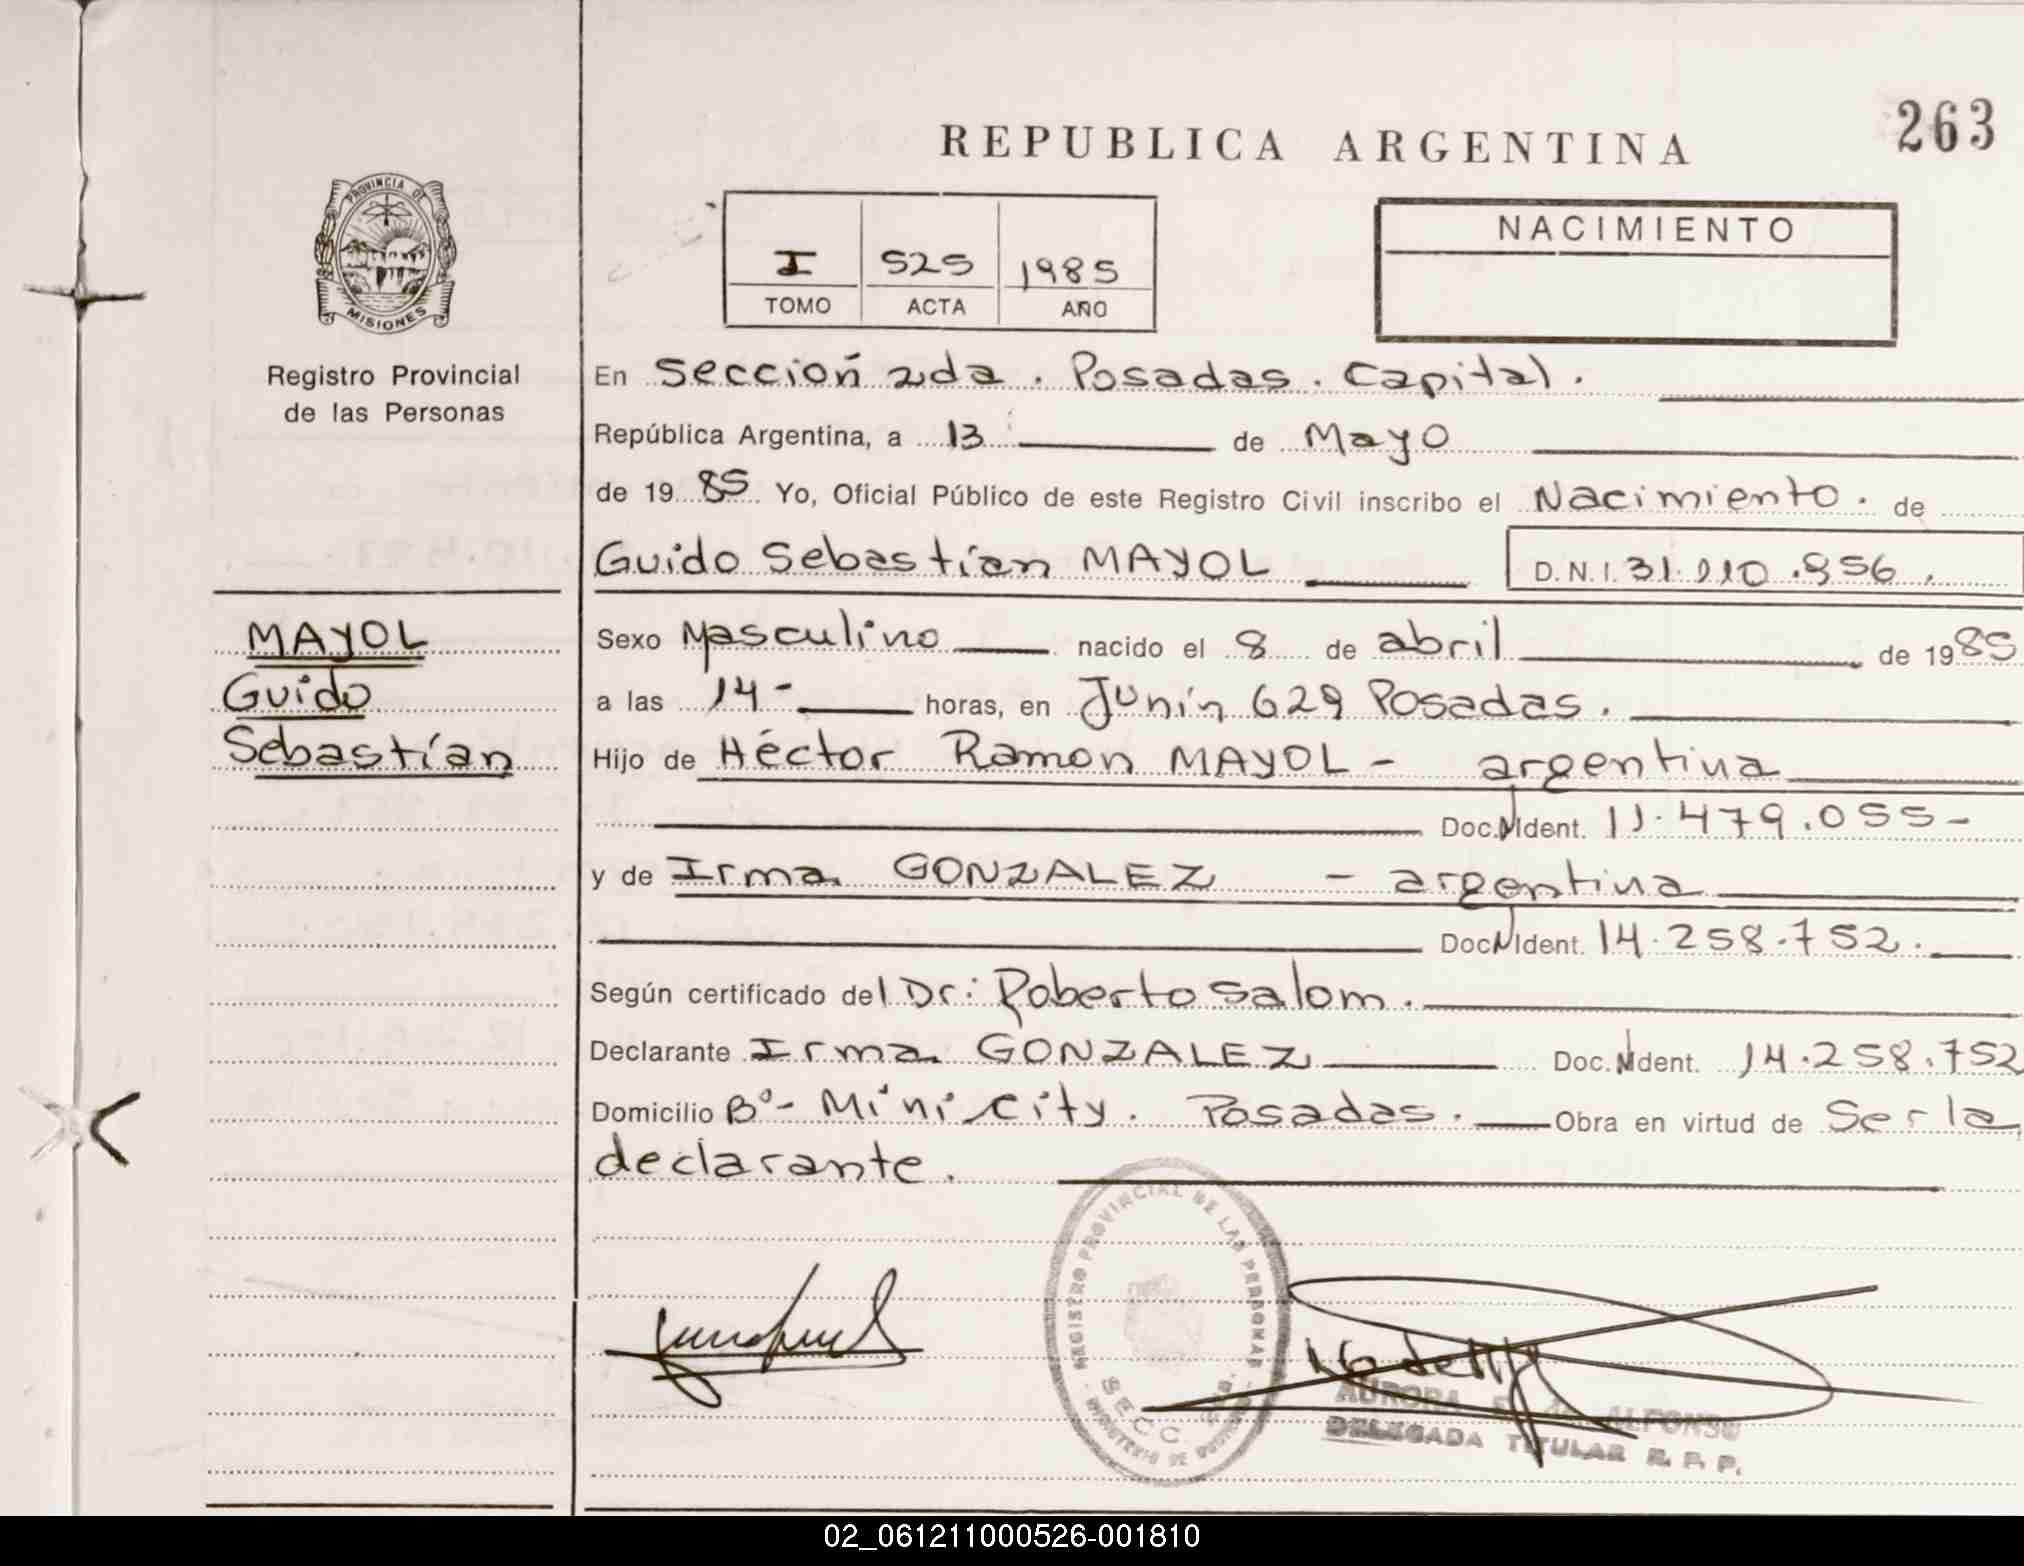 263
REPUBLICA ARGENTINA
PROVINCIA DE
MISIONES
Registro Provincial
de las Personas
I 525 1985
TOMO ACTA AÑO
NACIMIENTO
En Sección 2da. Posadas. Capital.
República Argentina, a 13 de Mayo
de 1985 Yo, Oficial Público de este Registro Civil inscribo el Nacimiento. de
Guido Sebastían MAYOL D.N.I. 31.010.856.
MAYOL
Guido
Sebastían
Sexo Masculino nacido el 8 de abril de 1985
a las 14- horas, en Junín 629 Posadas.
Hijo de Héctor Ramon MAYOL - argentina
Doc. N Ident. 11.479.055-
y de Irma GONZALEZ - argentina
Doc N Ident. 14.258.752.
Según certificado del Dr: Roberto Salom.
Declarante Irma GONZALEZ Doc. N Ident. 14.258.752
Domicilio Bº- Mini City. Posadas. Obra en virtud de Ser la
declarante.
REGISTRO PROVINCIAL DE LAS PERSONAS
SECC.
MINISTERIO DE
AURORA ALFONSO
DELEGADA TITULAR R. P. P.
02_061211000526-001810